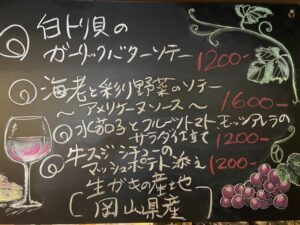 白トリ貝の
ガーリックバターソテー 1200-
海老と彩り野菜のソテー
～アメリケーヌソース～ 1600-
水茄子とフルーツトマト、モッツアレラの
サラダ仕立て 1200-
牛スジシチューの
マッシュポテト添え 1200-
生がきの産地
[岡山県産]